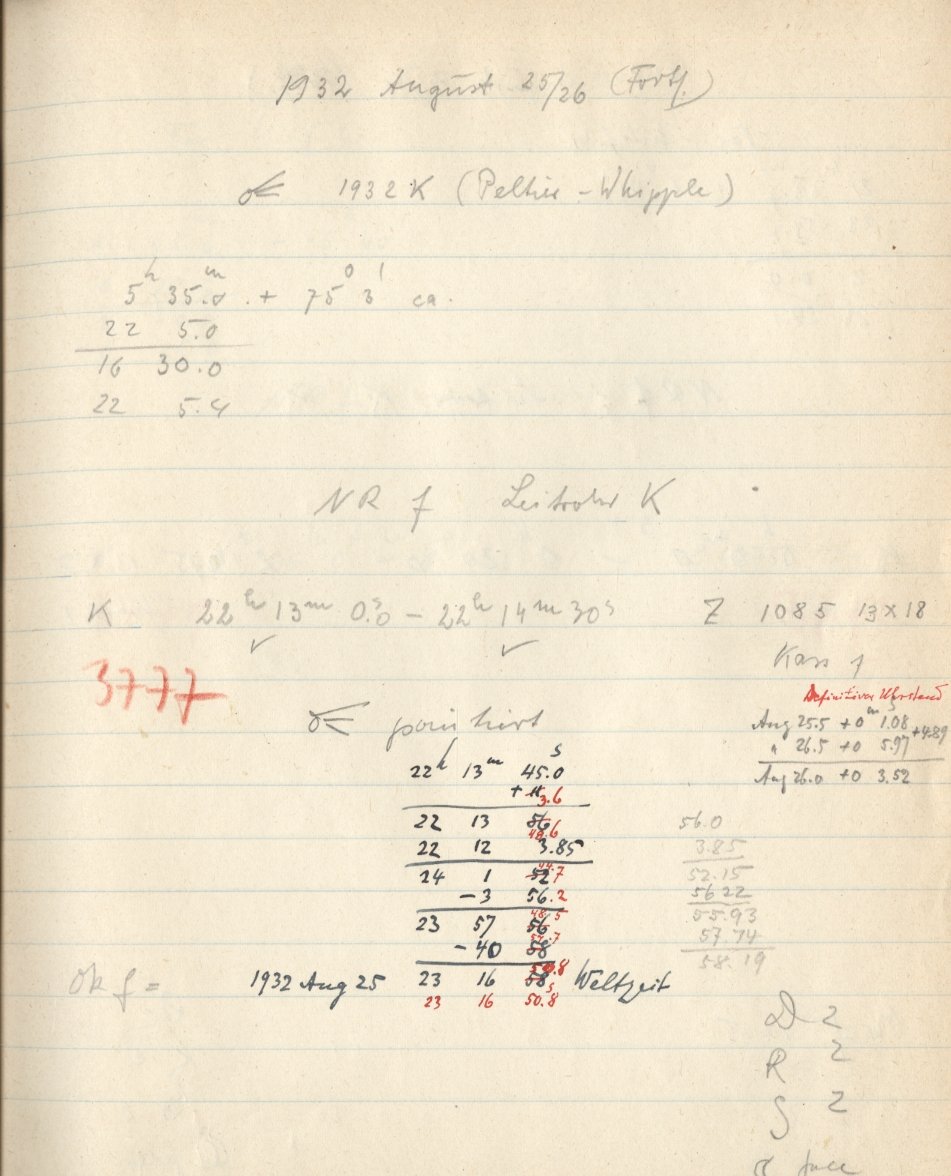 1932 August 25/26 (Fortf.)
☄ 1932 K (Peltier - Whipple)
5h 35.0m + 75° 3' ca.
22 5.0
16 30.0
22 5.4
NR f Leitrohr K
K 22h 13m 0.0s - 22h 14m 30s Z 1085 13x18
✓ ✓
Kass 1
3777
Definitiver Uhrstand
☄ pointirt
Aug 25.5 +0m 1.08s
" 26.5 +0 5.97 +4.89
Aug 26.0 +0 3.52
22h 13m 45.0s
+ 11 3.6
22 13 56 48.6
22 12 3.85
24 1 52 44.7
-3 56.2
23 57 56 48.5
-40 58 57.7
1932 Aug 25 23 16 58 50.8 Weltzeit
23 16 50.8s
56.0
3.85
52.15
56 22
55.93
57.74
58.19
f =
D 2
R 2
S 2